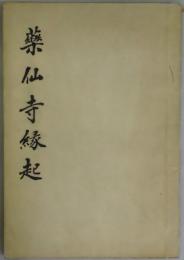 藥仙寺緣起